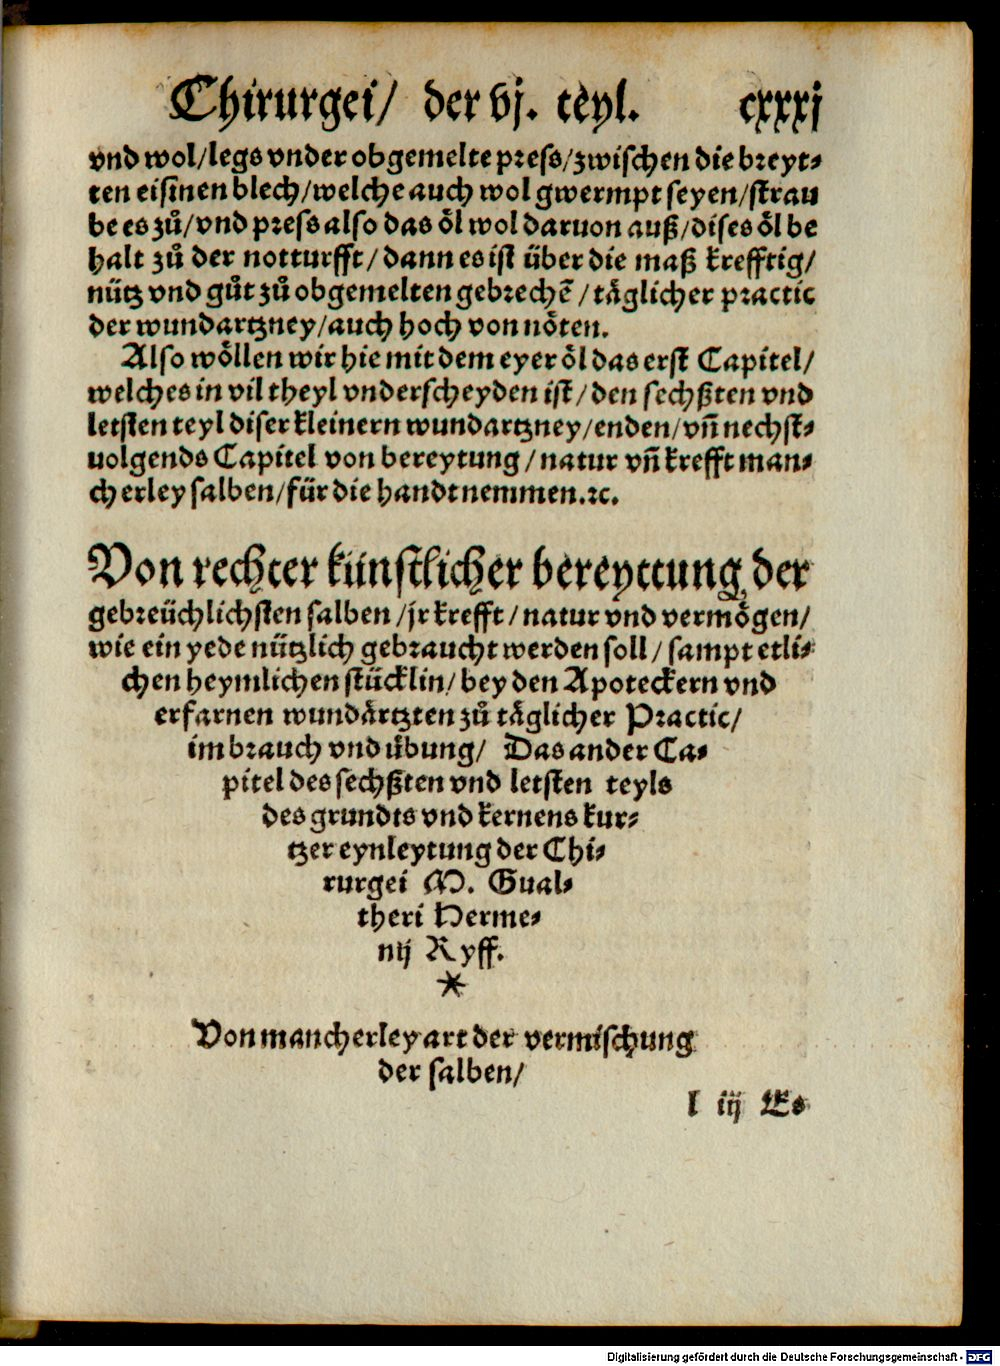 Chirurgei/ der vj. teyl. cxxxj
vnd wol/legs vnder obgemelte press/zwischen die breyt⸗
ten eisinen blech/welche auch wol gwermpt seyen/strau
be es zů/vnd press also das öl wol daruon auß/dises öl be
halt zů der notturfft/dann es ist über die maß krefftig/
nütz vnd gůt zů obgemelten gebrechē/täglicher practic
der wundartzney/auch hoch von nöten.
Also wöllen wir hie mit dem eyer öl das erst Capitel/
welches in vil theyl vnderscheyden ist/den sechßten vnd
letsten teyl diser kleinern wundartzney/enden/vñ nechst⸗
uolgends Capitel von bereytung/natur vñ krefft man⸗
cherley salben/für die handt nemmen.ꝛc.
Von rechter künstlicher bereyttung der
gebreüchlichsten salben/jr krefft/natur vnd vermögen/
wie ein yede nützlich gebraucht werden soll/sampt etli⸗
chen heymlichen stücklin/bey den Apoteckern vnd
erfarnen wundärtzten zů täglicher Practic/
im brauch vnd übung/ Das ander Ca⸗
pitel des sechßten vnd letsten teyls
des grundts vnd kernens kur⸗
tzer eynleytung der Chi⸗
rurgei M. Gual⸗
theri Herme⸗
nij Ryff.
*
Von mancherley art der vermischung
der salben/
l iij Es
Digitalisierung gefördert durch die Deutsche Forschungsgemeinschaft - DFG